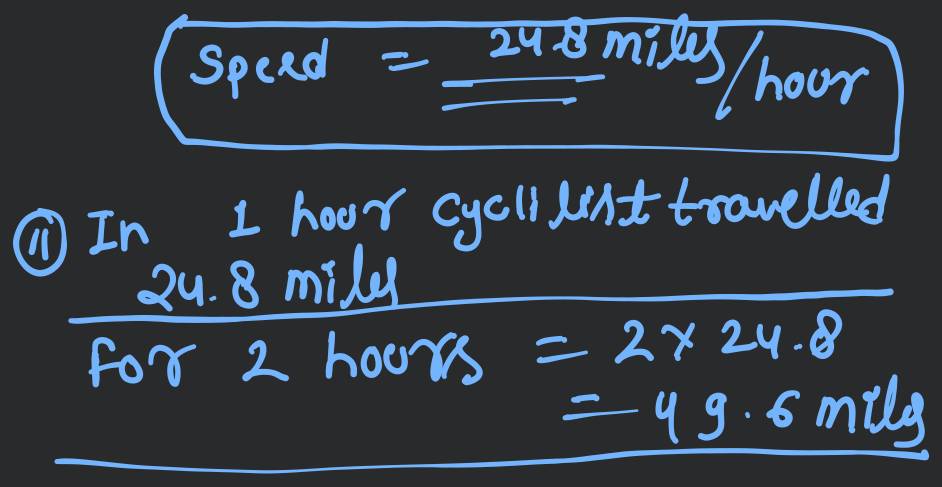 Speed = 24.8 miles/hour
(ii) In 1 hour cyclilist travelled
24.8 miles
for 2 hours = 2 x 24.8
= 49.6 miles